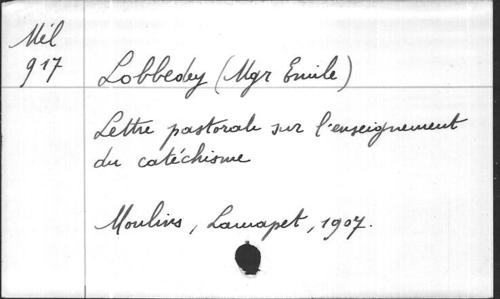 Mél
917
Lobbedey (Mgr Emile)
Lettre pastorale sur l'enseignement
du catéchisme
Moulins, Lamapet, 1907.